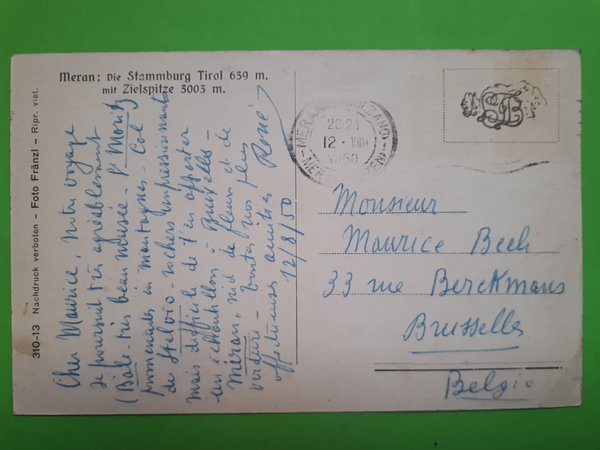 Meran: Die Stammburg Tirol 639 m.
mit Zielspitze 3003 m.
310-13 Nachdruck verboten - Foto Fränzl - Ripr. viet.
Cher Maurice, Notre voyage
se poursuit très agréablement
(Bâle - très beau musée - St Moritz
promenades en montagnes - Col
du Stelvio - rochers impressionnants
mais difficile de t'en apporter
un échantillon à Bruxelles -
Meran, nid de fleurs et de
verdure - Toutes nos plus
affectueuses amitiés René
12/8/50
20-21
12. VIII
1950
Monsieur
Maurice Beeli
33 rue Berckmans
Brusselles
Belgio